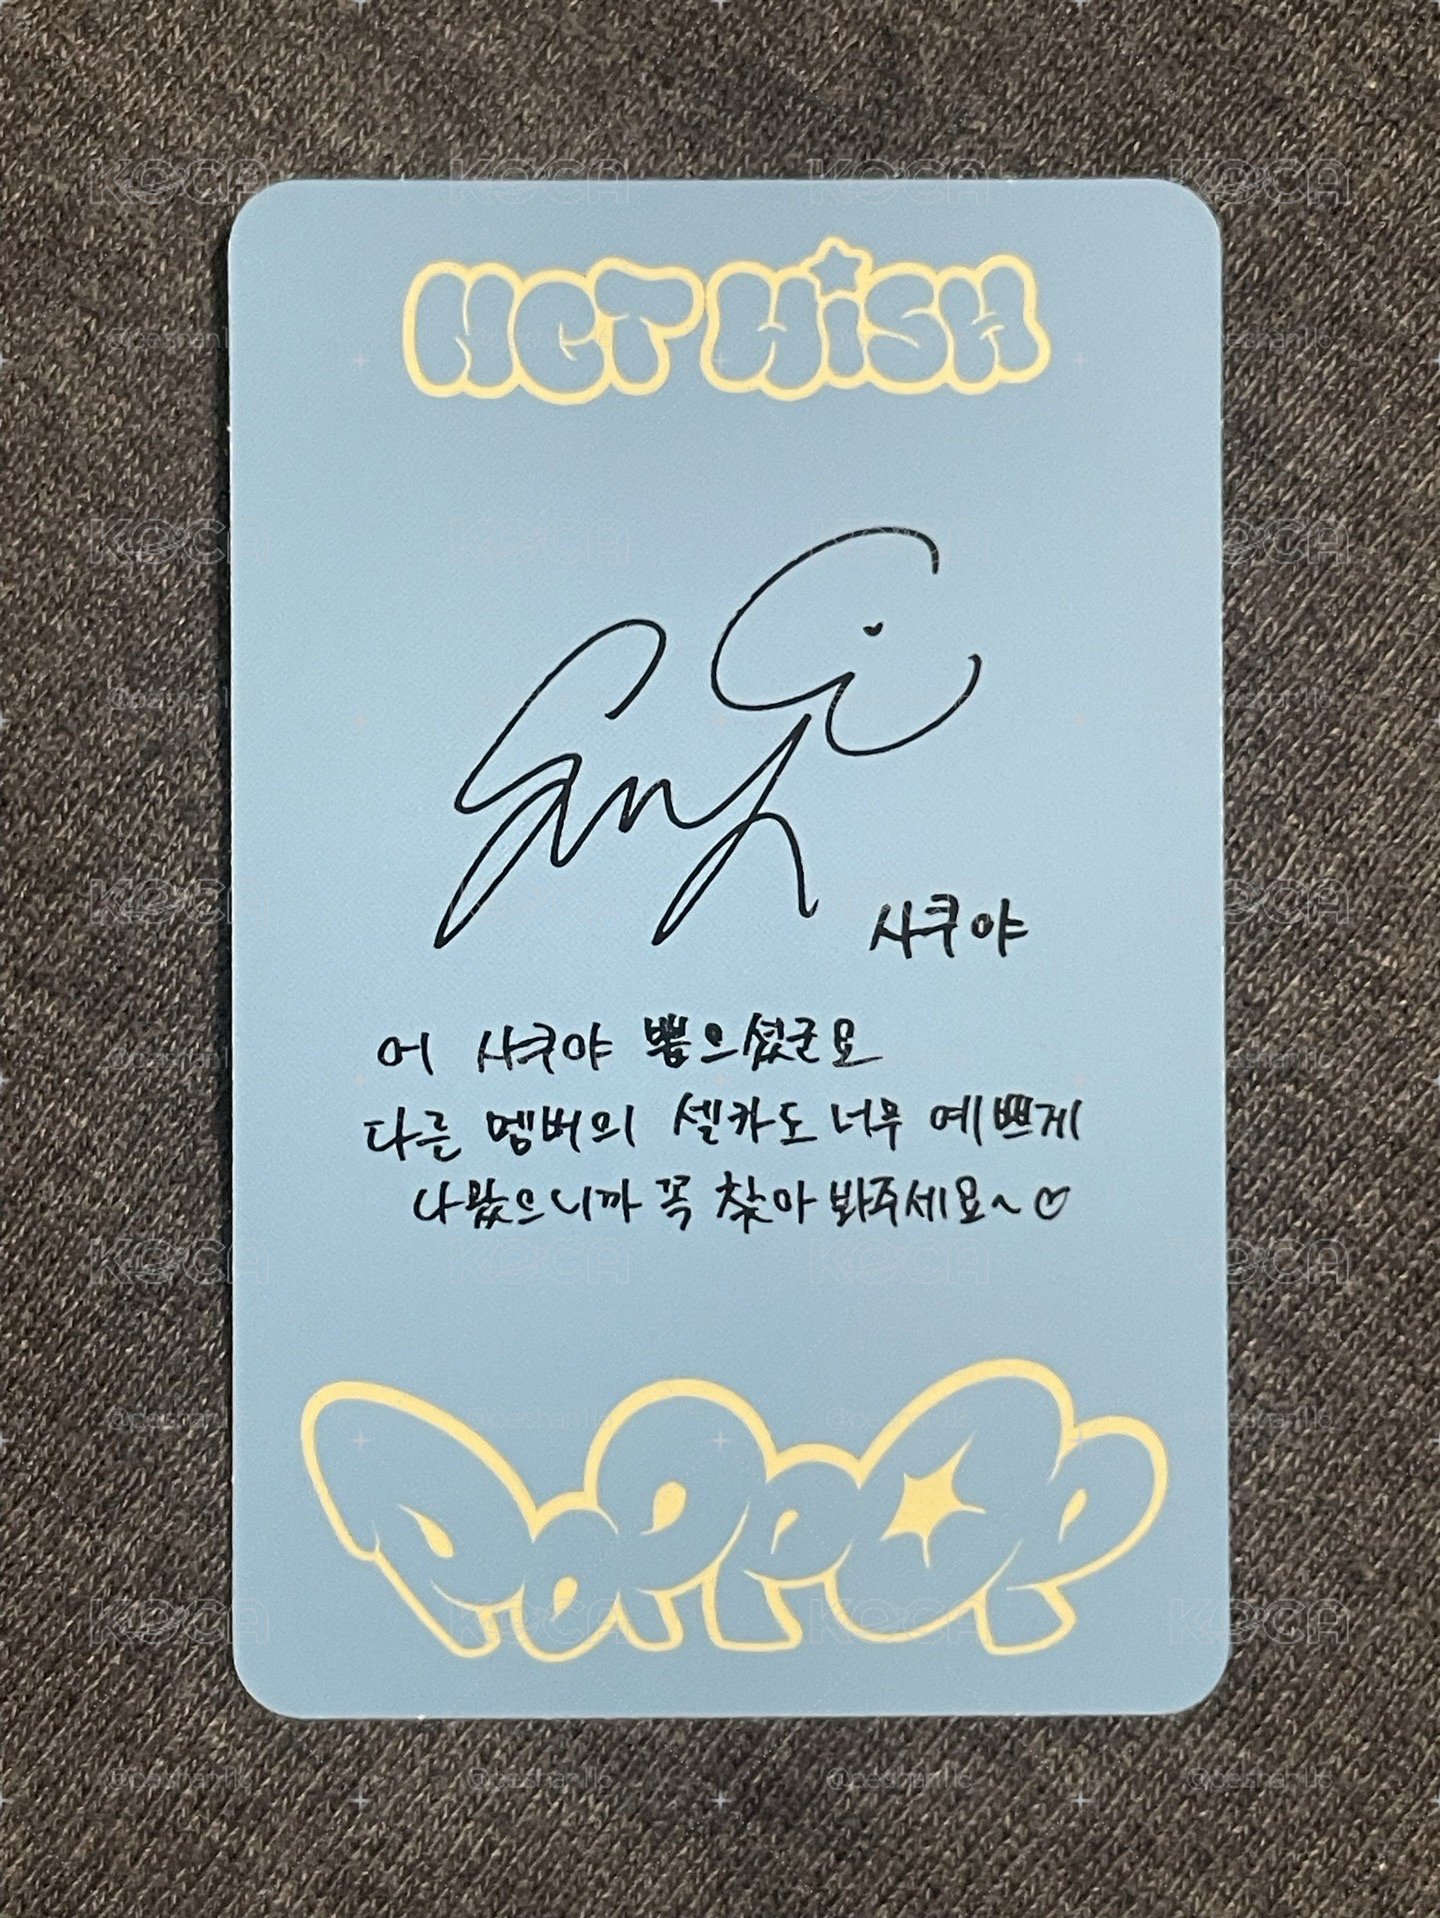 NCT WISH
사쿠야
어 사쿠야 뽑으셨군요
다른 멤버의 셀카도 너무 예쁘게
나왔으니까 꼭 찾아 봐주세요~♡
POPPOP